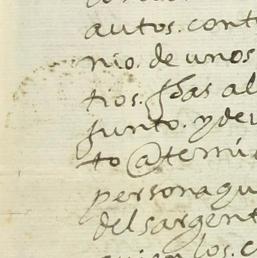 autos. cont
nio. de unos
tios. al
Junto. y de
to @ temi
persona qu
del sargent
los. c